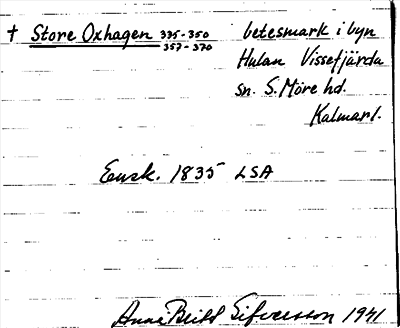 † Store Oxhagen 335-350 betesmark i byn
357-370
Hulan Vissefjärda
sn. S. Möre hd.
Kalmarl.
Ensk. 1835 LSA
Anna Britt Sifversson 1941